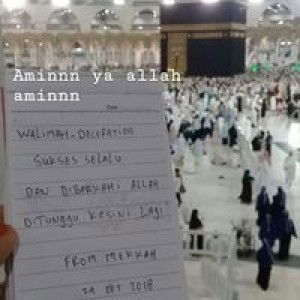 Aminnn ya allah
aminnn
WALIMAH-DECORATION
SUKSES SELALU
DAN DIBERKAHI ALLAH
DITUNGGU KESINI LAGI
FROM MEKKAH
24 OKT 2018